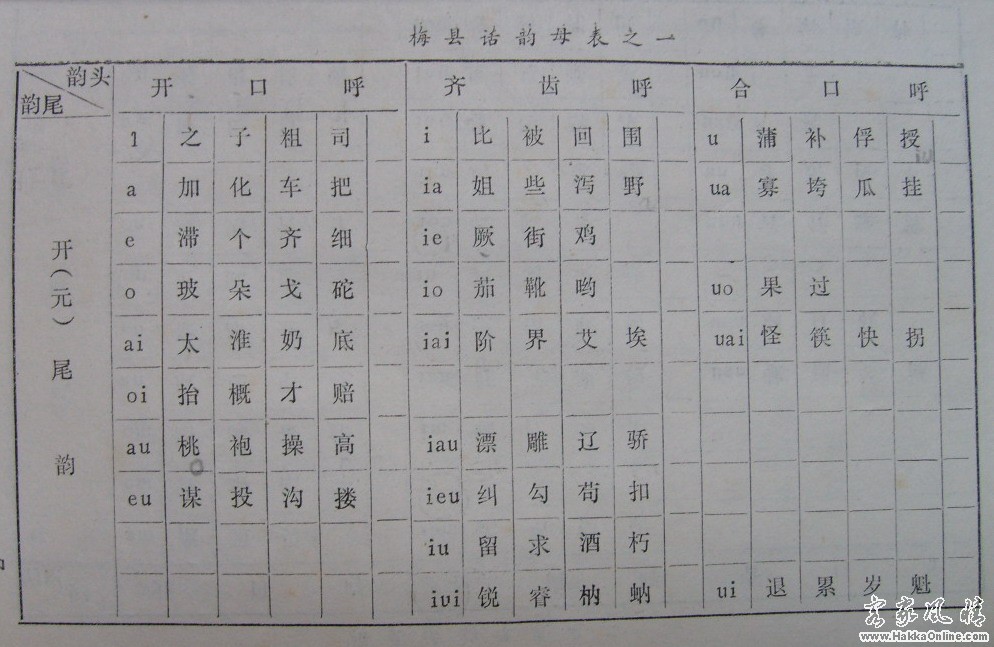 梅县话韵母表之一
韵头 开口呼 齐齿呼 合口呼
韵尾
开(元)尾韵
ɿ 之 子 粗 司 i 比 被 回 围 u 蒲 补 俘 授
iu
a 加 化 车 把 ia 姐 些 泻 野 ua 寡 垮 瓜 挂
e 滞 个 齐 细 ie 厥 街 鸡
o 玻 朵 戈 砣 io 茄 靴 哟 uo 果 过
ai 太 淮 奶 底 iai 阶 界 艾 埃 uai 怪 筷 快 拐
oi 抬 概 才 赔
au 桃 袍 操 高 iau 漂 雕 辽 骄
eu 谋 投 沟 搂 ieu 纠 勾 苟 扣
iu 留 求 酒 朽
iui 锐 睿 枘 蚋 ui 退 累 岁 魁
客家风情
www.HakkaOnline.com